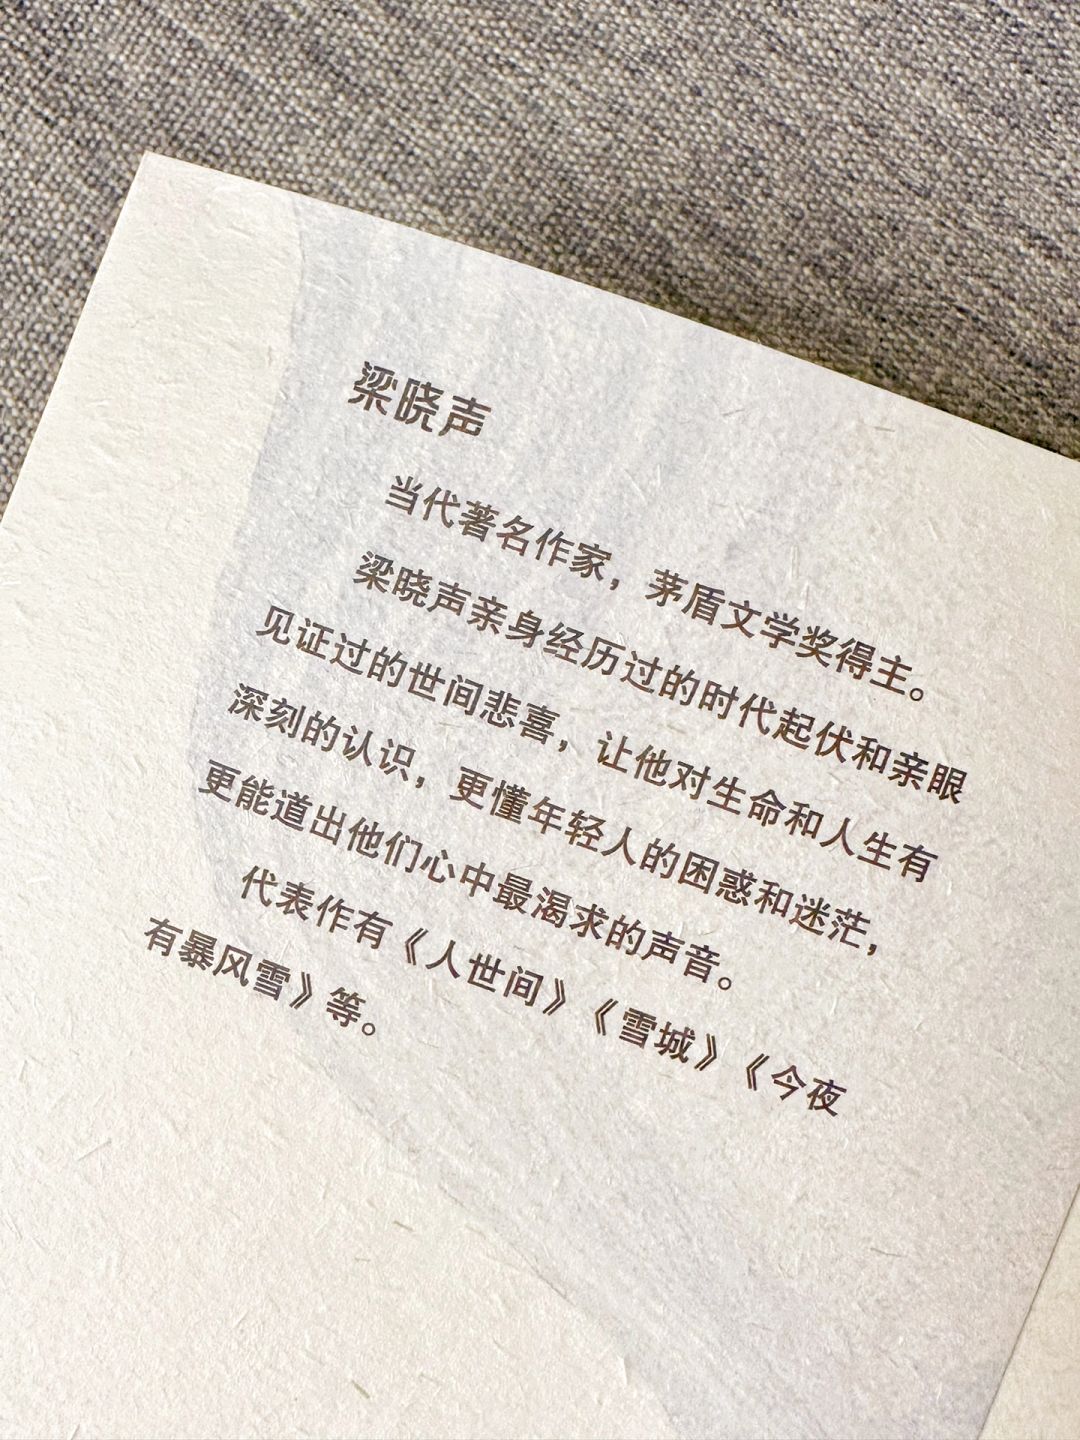 梁晓声
当代著名作家，茅盾文学奖得主。
梁晓声亲身经历过的时代起伏和亲眼
见证过的世间悲喜，让他对生命和人生有
深刻的认识，更懂年轻人的困惑和迷茫，
更能道出他们心中最渴求的声音。
代表作有《人世间》《雪城》《今夜
有暴风雪》等。